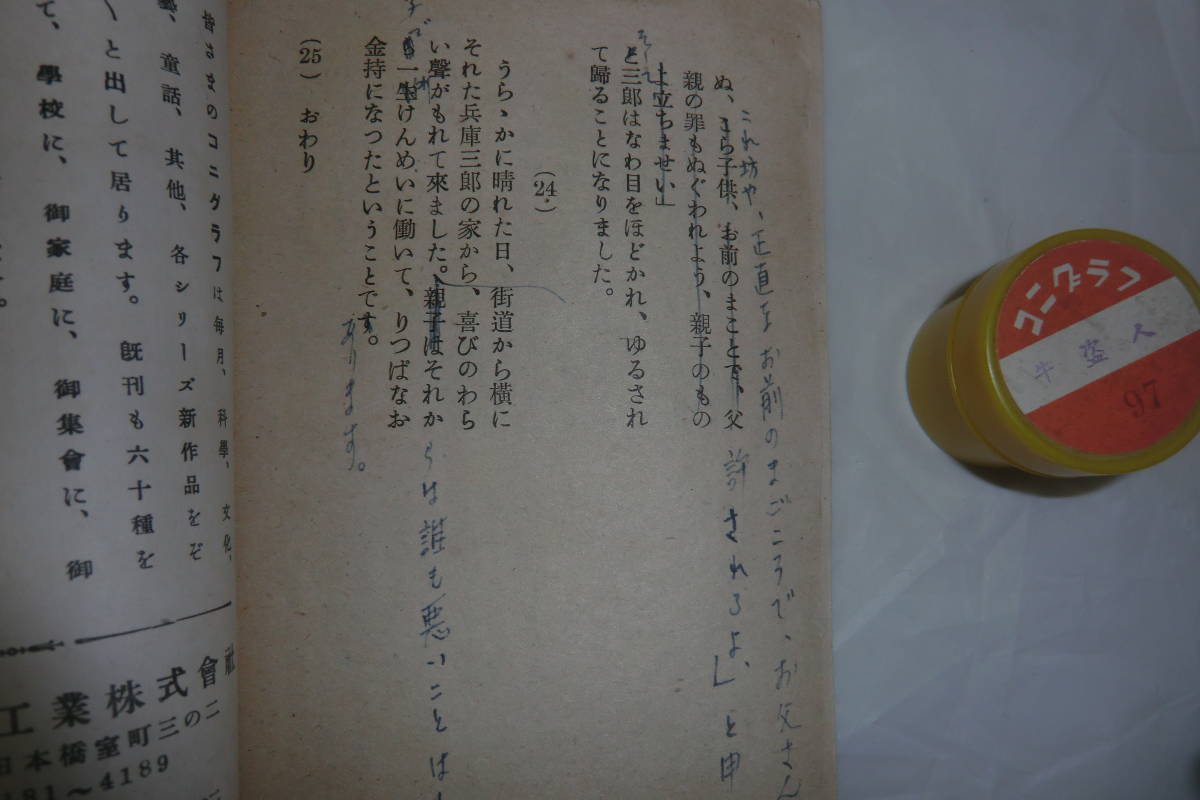 これ坊や、正直なお前のまごころで、お父さん
許されるよ、」と申
ぬ、こら子供、お前のまことで、父
親の罪もぬぐわれよう、親子のもの
よ立ちませい」
そして
と三郎はなわ目をほどかれ、ゆるされ
て歸ることになりました。
(24)
うらゝかに晴れた日、街道から横に
それた兵庫三郎の家から、喜びのわら
い聲がもれて來ました。親子はそれか
らは誰も悪いことは
一生けんめいに働いて、りつぱなお
金持になつたということです。
あります。
(25) おわり
皆さまのコニグラフは毎月、科學、文化、
童話、其他、各シリーズ新作品をぞ
く〱と出して居ります。既刊も六十種を
て、學校に、御家庭に、御集會に、御
工業株式會社
日本橋室町三の二
181〜4189
コニグラフ
牛盗人
97